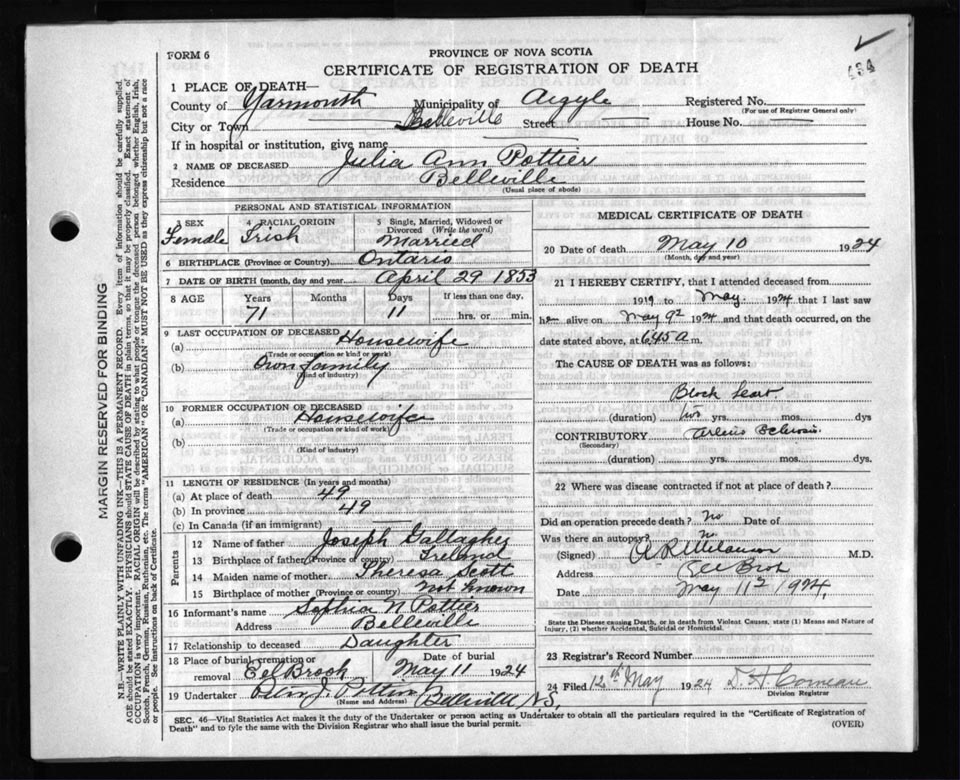 FORM 6
PROVINCE OF NOVA SCOTIA
CERTIFICATE OF REGISTRATION OF DEATH
484
1 PLACE OF DEATH—
County of Yarmouth Municipality of Argyle Registered No.
(For use of Registrar General only)
City or Town Belleville Street House No.
If in hospital or institution, give name
2 NAME OF DECEASED Julia Ann Pottier
Residence Belleville
(Usual place of abode)
PERSONAL AND STATISTICAL INFORMATION
3 SEX Female
4 RACIAL ORIGIN Irish
5 Single, Married, Widowed or Divorced (Write the word) Married
6 BIRTHPLACE (Province or Country) Ontario
7 DATE OF BIRTH (month, day and year) April 29 1853
8 AGE Years Months Days If less than one day,
71 11 hrs. or min.
9 LAST OCCUPATION OF DECEASED
(a) Housewife
(Trade or occupation or kind of work)
(b) Own family
(Kind of industry)
10 FORMER OCCUPATION OF DECEASED
(a) Housewife
(Trade or occupation or kind of work)
(b)
(Kind of industry)
11 LENGTH OF RESIDENCE (In years and months)
(a) At place of death 49
(b) In province 49
(c) In Canada (if an immigrant)
Parents
12 Name of father Joseph Gallagher
13 Birthplace of father (Province or country) Ireland
14 Maiden name of mother Theresa Scott
15 Birthplace of mother (Province or country) Not known
16 Informant's name Sophia N Pottier
Address Belleville
17 Relationship to deceased Daughter
18 Place of burial, cremation or removal Eel Brook Date of burial May 11 1924
19 Undertaker Pottier Belleville N.S.
(Name and Address)
MEDICAL CERTIFICATE OF DEATH
20 Date of death May 10 1924
(Month, day and year)
21 I HEREBY CERTIFY, that I attended deceased from
1919 to May 1924 that I last saw
her alive on May 9 1924 and that death occurred, on the
date stated above, at 6.45 a m.
The CAUSE OF DEATH was as follows:
Block heart
(duration) yrs. mos. dys
CONTRIBUTORY Sclerosis
(Secondary)
(duration) yrs. mos. dys.
22 Where was disease contracted if not at place of death?
Did an operation precede death? No Date of
Was there an autopsy? No
(Signed) M.D.
Address Eel Brook
Date May 11 1924
State the Disease causing Death, or in death from Violent Causes, state (1) Means and Nature of
Injury, (2) whether Accidental, Suicidal or Homicidal.
23 Registrar's Record Number
24 Filed 12th May 1924 Comeau
Division Registrar
SEC. 46—Vital Statistics Act makes it the duty of the Undertaker or person acting as Undertaker to obtain all the particulars required in the "Certificate of Registration of
Death" and to fyle the same with the Division Registrar who shall issue the burial permit.
(OVER)
MARGIN RESERVED FOR BINDING
N.B.—WRITE PLAINLY WITH UNFADING INK—THIS IS A PERMANENT RECORD. Every item of information should be carefully supplied.
AGE should be stated EXACTLY. PHYSICIANS should STATE CAUSE OF DEATH in plain terms, so that it may be properly classified. Exact statement of
OCCUPATION is very important. RACIAL ORIGIN will be described by stating to what people or tongue the deceased person belonged whether English, Irish,
Scotch, French, German, Russian, Ruthenian, etc. The terms "AMERICAN" OR "CANADIAN" MUST NOT BE USED as they express citizenship but not a race
or people. See instructions on back of Certificate.